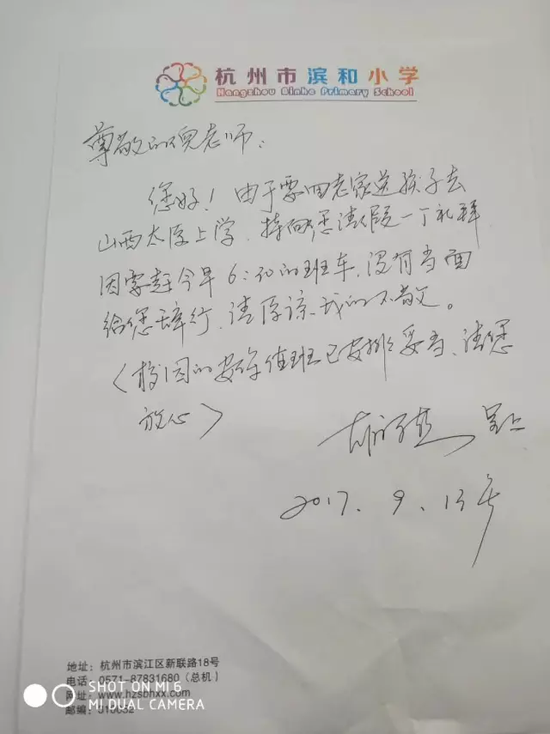 杭州市滨和小学
Hangzhou Binhe Primary School
尊敬的倪老师：
您好！由于要回老家送孩子去
山西太原上学，特向您请假一个礼拜
因需赶今早6:30的班车，没有当面
给您辞行，请原谅我的不敬。
（校园的安全值班已安排妥当、请您
放心）
呈上
2017.9.13号
地址：杭州市滨江区新联路18号
电话：0571-87831680（总机）
网址：www.hzsbhxx.com
邮编：310052
SHOT ON MI 6
MI DUAL CAMERA